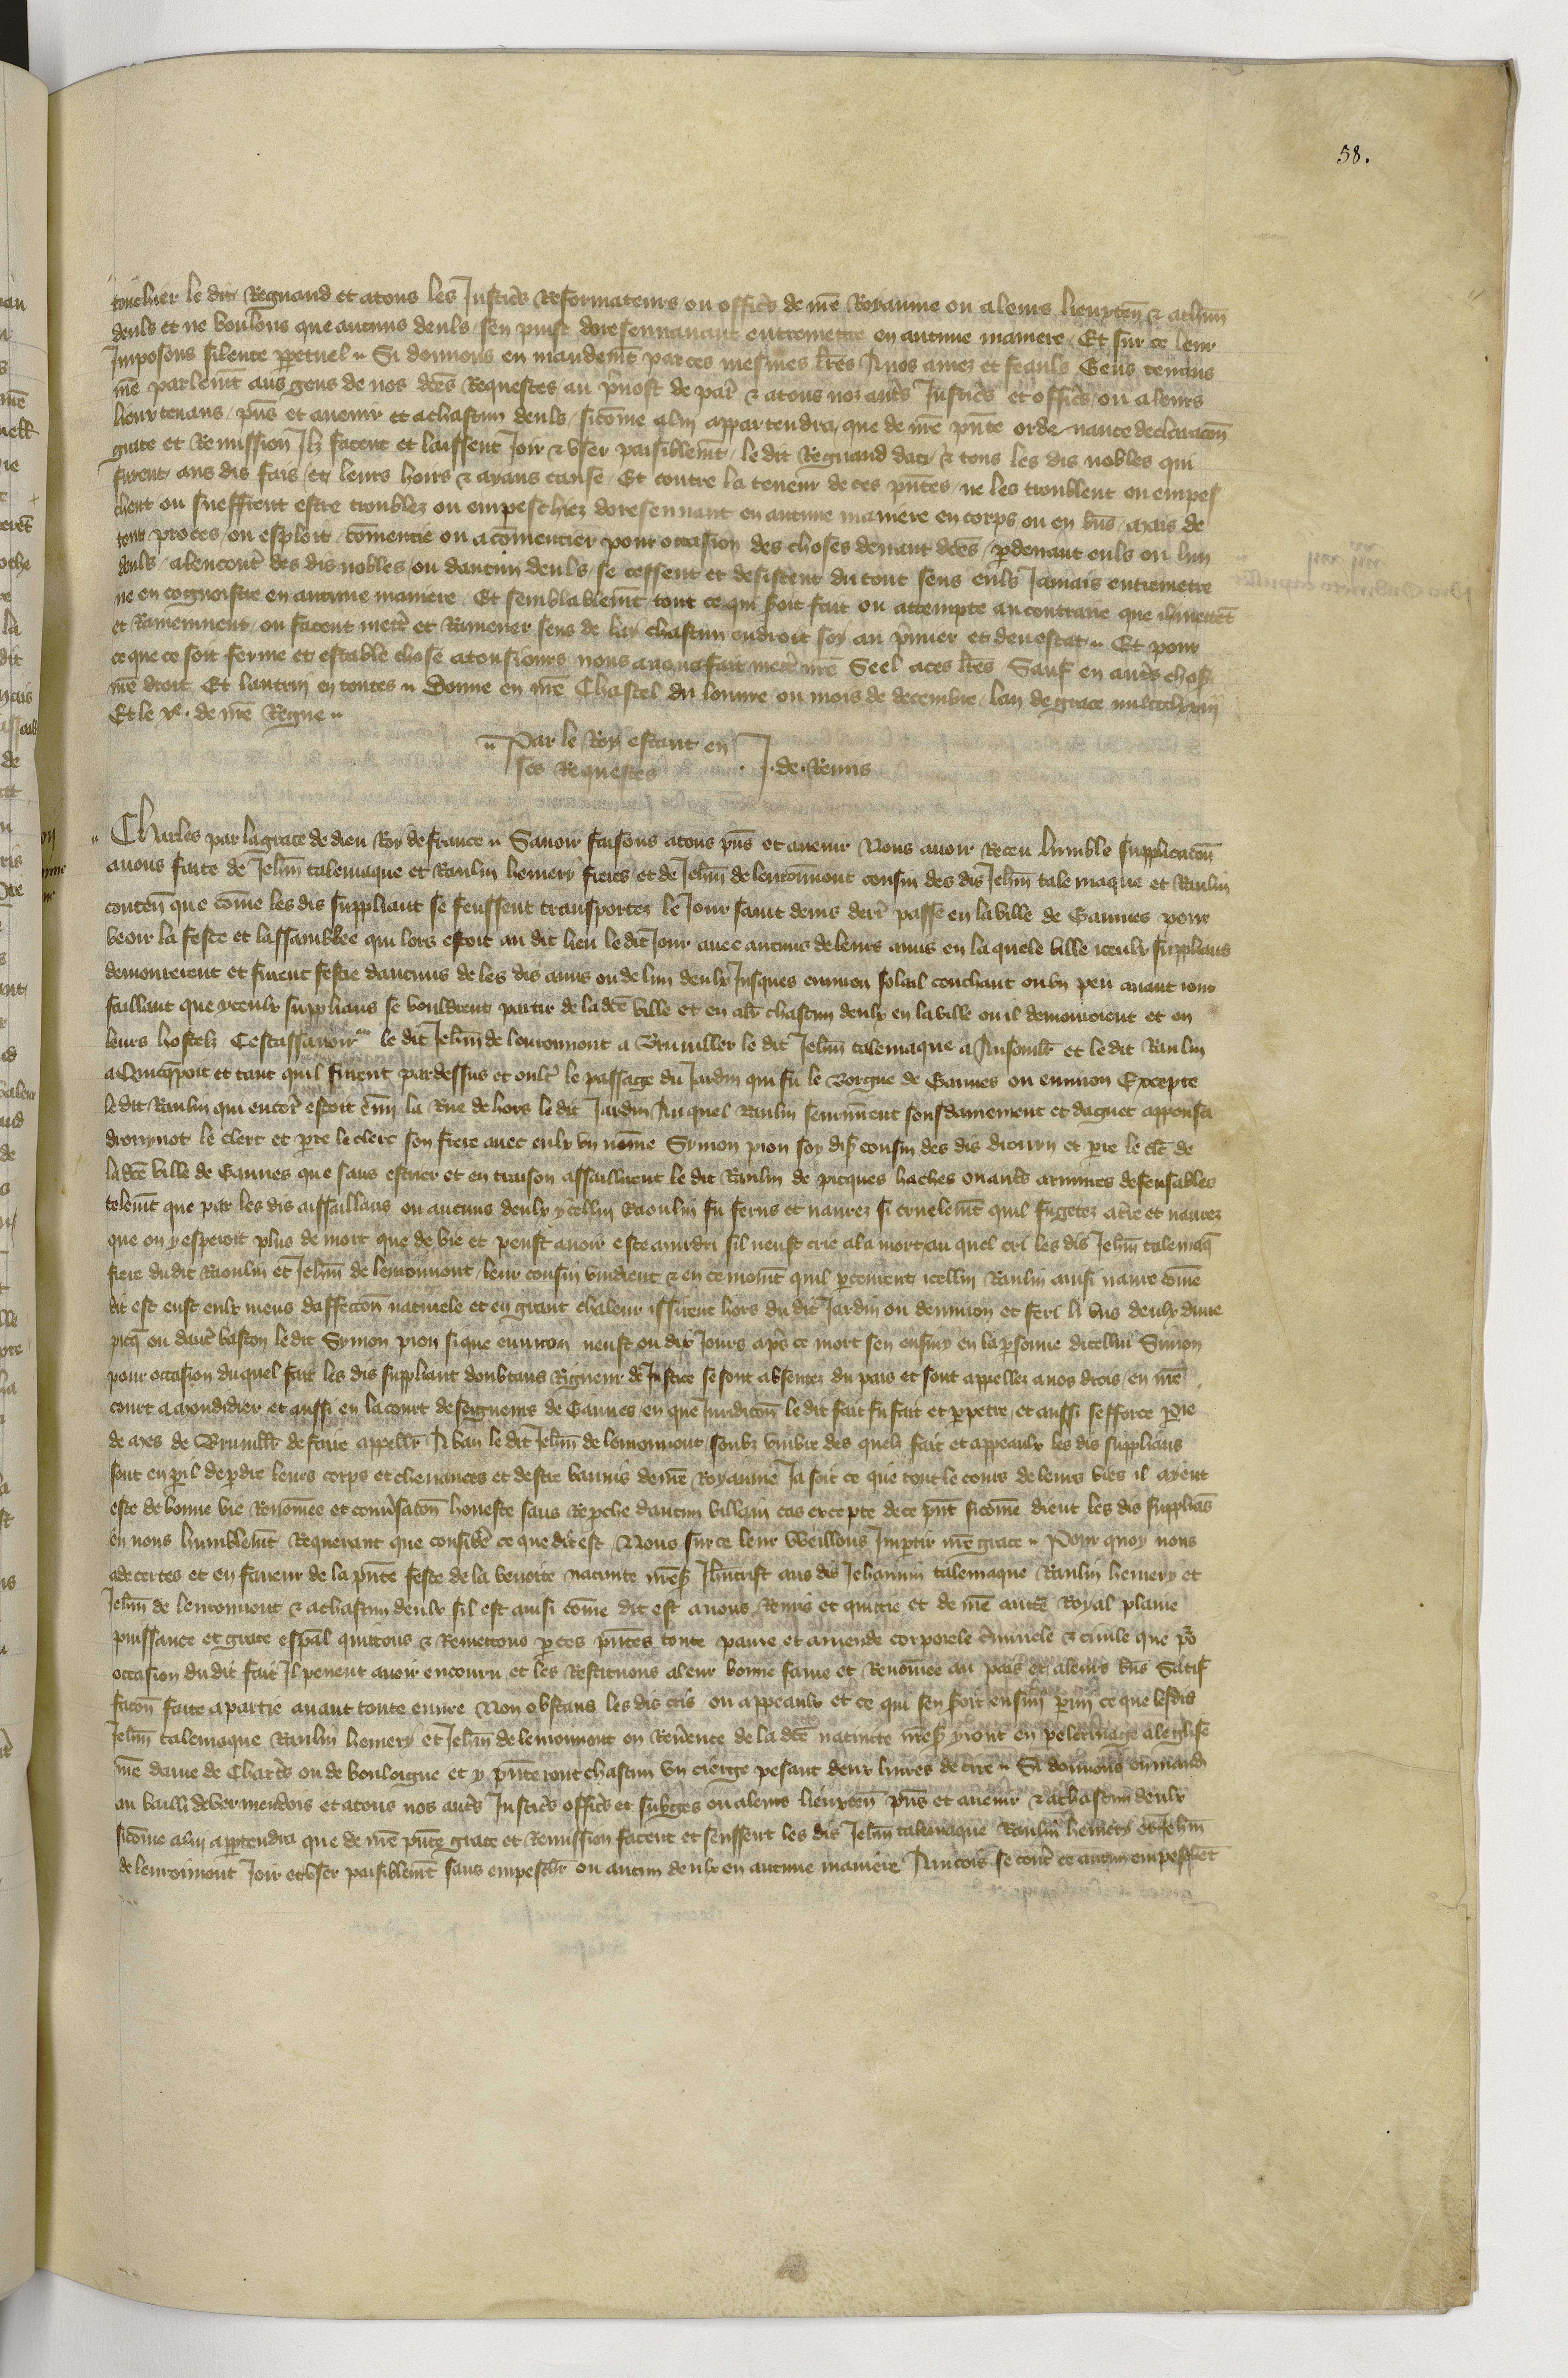 58.
touchier le dit Regnaud et a tous les Justic̄s Reformateurs ou offic̄s de nr̄e Royaume ou a leurs lieuxten̄ & a chūn
deuls et ne voulons que aucuns deuls sen puist doresennavant entremettre en aucune maniere Et sur ce leur
Imposons silence ꝑpetuel Si donnons en mandemēt par ces mesmes lr̄es A nos amez et feauls Gens tenans
nr̄e parlemt̄ aus gens de nos dc̄es Requestes au p̄vost de par̄ & a tous noz autr̄s Justic̄s et offic̄s ou a leurs
lieuxtenans p̄ns et avenir et a chascun deuls sicōme a lui appartendra que de nr̄e p̄nte ordenance declaracōn
grace et Remission Ilz facent et laissent Joir & user paisiblemt̄ le dit Regnaud daci & tous les dis nobles qui
furent aus dis fais et leurs hoirs & ayans cause Et contre la teneur de ces p̄ntes ne les troublent ou empes
chent ou sueffrent estre troublez ou empeschiez doresennant en aucune maniere en corps ou en bn̄s mais de
tout proces ou esploit cōmencie ou a cōmencier pour occasion des choses devant dc̄es ꝑdevant euls ou lun
deuls alencontr̄ des dis nobles ou daucun deuls se cessent et desistent du tout sens euls Jamais entremetre
ne en cognoistre en aucune maniere Et semblablemt̄ tout ce qui soit fait ou attempte au contraire que il mettēt
et Ramennent ou facent mettr̄ et Ramener sens delay chascun endroit soy au p̄mier et deu estat Et pour
ce que ce soit ferme et estable chose a tousiours nous avons fait mettr̄ nr̄e Seel a ces lr̄es Sauf en autr̄s chos̄
nr̄e droit Et lautrui en toutes Donne en nr̄e Chastel du louvre ou mois de decembre lan de grace mil ccclxxiij
Et le xe. de nr̄e Regne
Par le Roy estant en
ses Requestes J. de. Reims
Charles par la grace de dieu Roy de france Savoir faisons a tous p̄ns et avenir Nous avoir Receu humble supplicacōn
a nous faite de Jehn̄ talemaque et Raulin hemery freres et de Jehn̄ de leuronmont cousin des dis Jehn̄ talemaque et Raulin
conten̄ que cōme les dis suppliant se feussent transportez le Jour saint denis derr̄ passe en la ville de Gannes pour
veoir la feste et lassamblee qui lors estoit au dit lieu le dit Jour avec aucuns de leurs amis en la quele ville iceulx supplians
demourerent et firent feste daucuns de les dis amis ou de lun deulx Jusques environ solail couchant ou un peu avant iour
faillant que yceulx supplians se vouldrent partir de la dc̄e ville et en alr̄ chascun deulx en la ville ou il demouroient et en
leurs hostelz Cestassavoir le dit Jehn̄ de leuronmont a Brunviller le dit Jehn̄ talemaque a Ansonvilr̄ et le dit Raulin
a Quiquepoit et tant quil furent par dessus et oultr̄ le passage du Jardin qui fu le Borgne de Gannes ou environ Excepte
le dit Raulin qui encor̄ estoit enmy la Rue dehors le dit Jardin Au quel Raulin seurvinrent soudainement et daguet appensa
drouynot le clerc et pr̄e le clerc son frere avec eulx un nōme Symon pion soy dis̄ cousin des dis drouyn et pr̄e le clr̄c de
la dc̄e ville de Gannes que sans escrier et en traison assaillirent le dit Raulin de picques haches ou autr̄s armures defensables
telemt̄ que par les dis assaillans ou aucuns deulx ycellui Raoulin fu ferus et navrez si cruelemt̄ quil fu getez a tr̄re et navrez
que on y esperoit plus de mort que de vie et peust avoir este murdri sil neust crie a la mort au quel cri les dis Jehn̄ talemaq̄
frere du dit Raoulin et Jehn̄ de leuronmont leur cousin vindrent & en ce momt̄ quil ꝑceurent icellui Raulin ainsi navre cōme
dit est eust eulx meus daffeccōn naturele et en grant chaleur issirent hors du dit Jardin ou environ et feri li uns deulx dune
picq̄ ou dautr̄ baston le dit Symon pion si que environ neuf ou dix Jours apr̄s ce mort sen ensuy en la ꝑsonne dicellui Simon
pour occasion duquel fait les dis suppliant doubtans Rigueur de Justice se sont absentez du pais et sont appellez a nos drois en nr̄e
court a Mondidier et aussi en la court de seigneurs de Gannes en que Juridicōn le dit fait fu fait et ꝑpetre et aussi sefforce pr̄e
de mes de Brunvillr̄ de faire appellr̄ A ban le dit Jehn̄ de leuronmont soubz umbre des quelz fait et appeaulx les dis supplians
sont en ꝑil de ꝑdre leurs corps et chevances et destre bannis de nr̄e Royaume Ja soit ce que tout le cours de leurs vies il ayent
este de bonne vie Renōmee et convsacōn honeste sans Repͬche daucun villain cas excepte de ce p̄nt sicōme dient les dis supplīas
en nous humblemt̄ Requerant que consider̄ ce que dit est Nous sur ce leur Weillons Imꝑtir nr̄e grace Pour quoy nous
adecertes et en faveur de la p̄nte feste de la benoite nativite nr̄es̄ Jhūcrist aus dis Jehannin talemaque Raulin hemery et
Jehn̄ de leuronmont & a chascun deulx sil est ainsi cōme dit est avons Remis et quittie et de nr̄e auctē Royal plaine
puissance et grace esp̄al quittons & Remettons ꝑ ces p̄ntes toute paine et amende corporele c̄minele & civile que pͦ
occasion du dit fait Il pevent avoir encouru et les Restituons a leur bonne fame et Renōmee au pais et a leurs bn̄s Satif
facōn faite a partie avant toute euvre Non obstans les dis cris ou appeaulx et ce qui sen soit ensuī ꝑmi ce que lesdis
Jehn̄ talemaque Raulin hemery et Jehn̄ de leuronmont en Reuēence de la dc̄e nativite nr̄es̄ yront en pelerinage a leglise
nr̄e dame de Chartr̄s ou de bouloigne et y p̄nteront chascun un cierge pesant deux livres de cire Si donnons en mand̄
au bailli de vermendois et a tous nos autr̄s Justic̄s offic̄s et subges ou a leurs lieuxten̄ p̄ns et avenir & a chascun deulx
sicōme a lui appartendra que de nr̄e p̄nte grace et Remission facent et seuffrent les dis Jehn̄ talemaque Raulin hemery et Jehn̄
de leuronmont Joir et user paisiblemt̄ sans empeschr̄ ou aucun deulx en aucune maniere Aincois se contr̄ ce aucun empeschēt